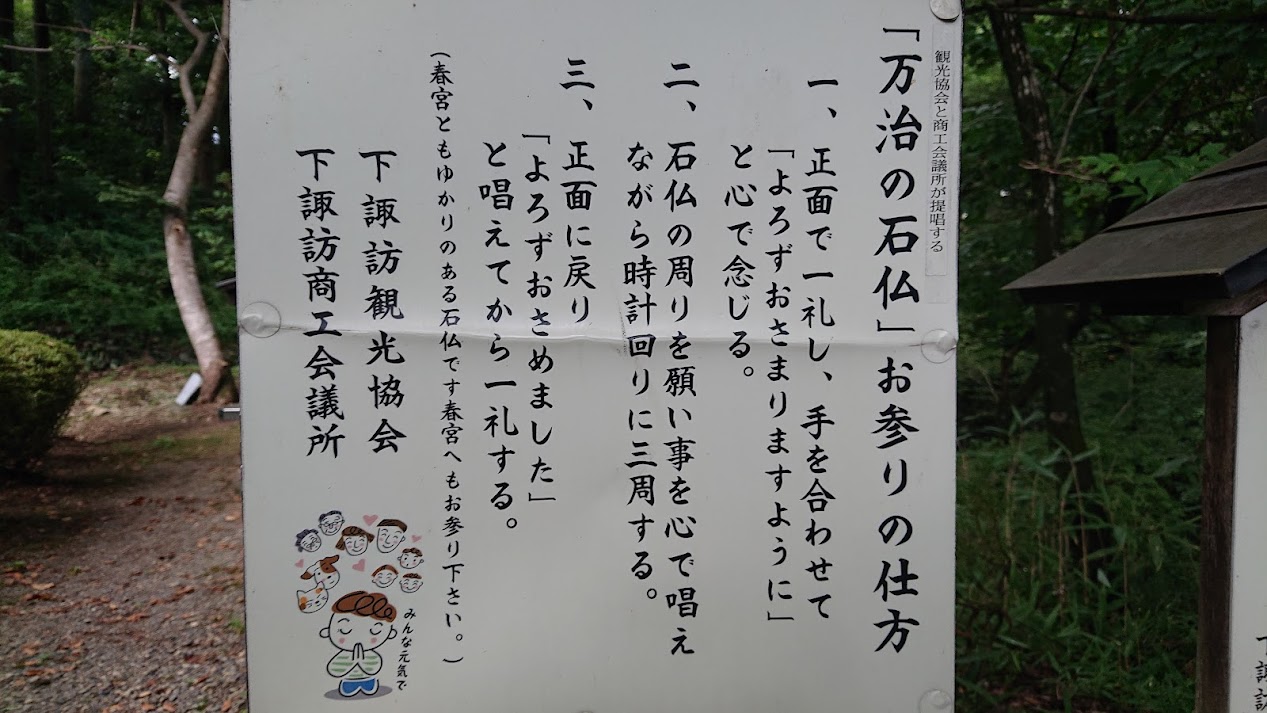 観光協会と商工会議所が提唱する
「万治の石仏」お参りの仕方
一、正面で一礼し、手を合わせて
「よろずおさまりますように」
と心で念じる。
二、石仏の周りを願い事を心で唱え
ながら時計回りに三周する。
三、正面に戻り
「よろずおさめました」
と唱えてから一礼する。
(春宮ともゆかりのある石仏です春宮へもお参り下さい。)
下諏訪観光協会
下諏訪商工会議所
みんな元気で
下諏訪